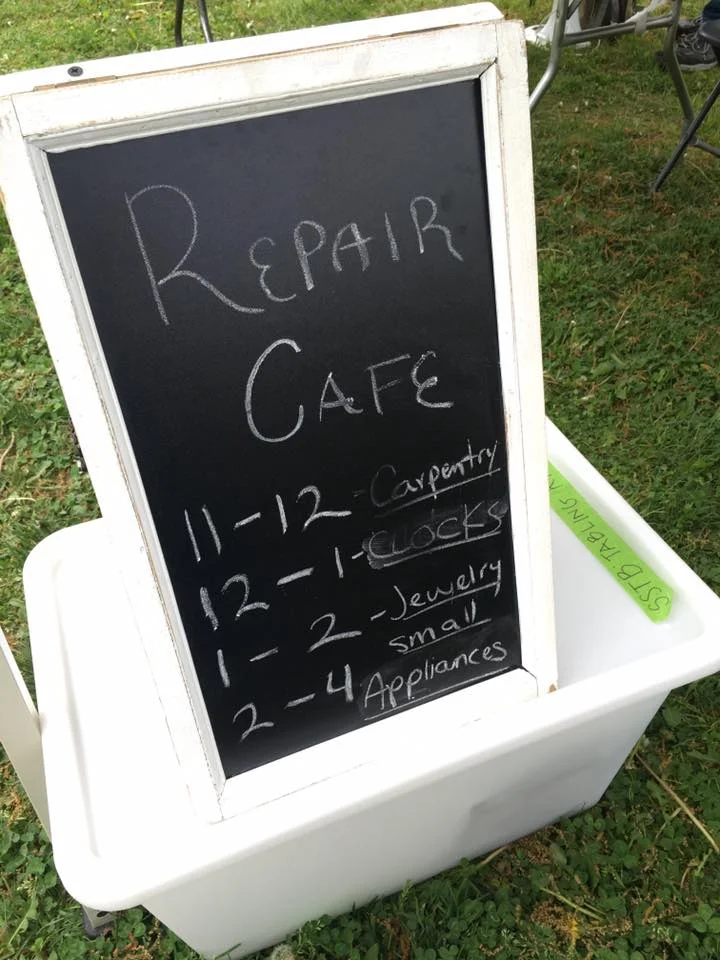 REPAIR
CAFE
11-12 - Carpentry
12-1-CLOCKS
1-2 - Jewelry
small
2-4 Appliances
SSTB TABLING